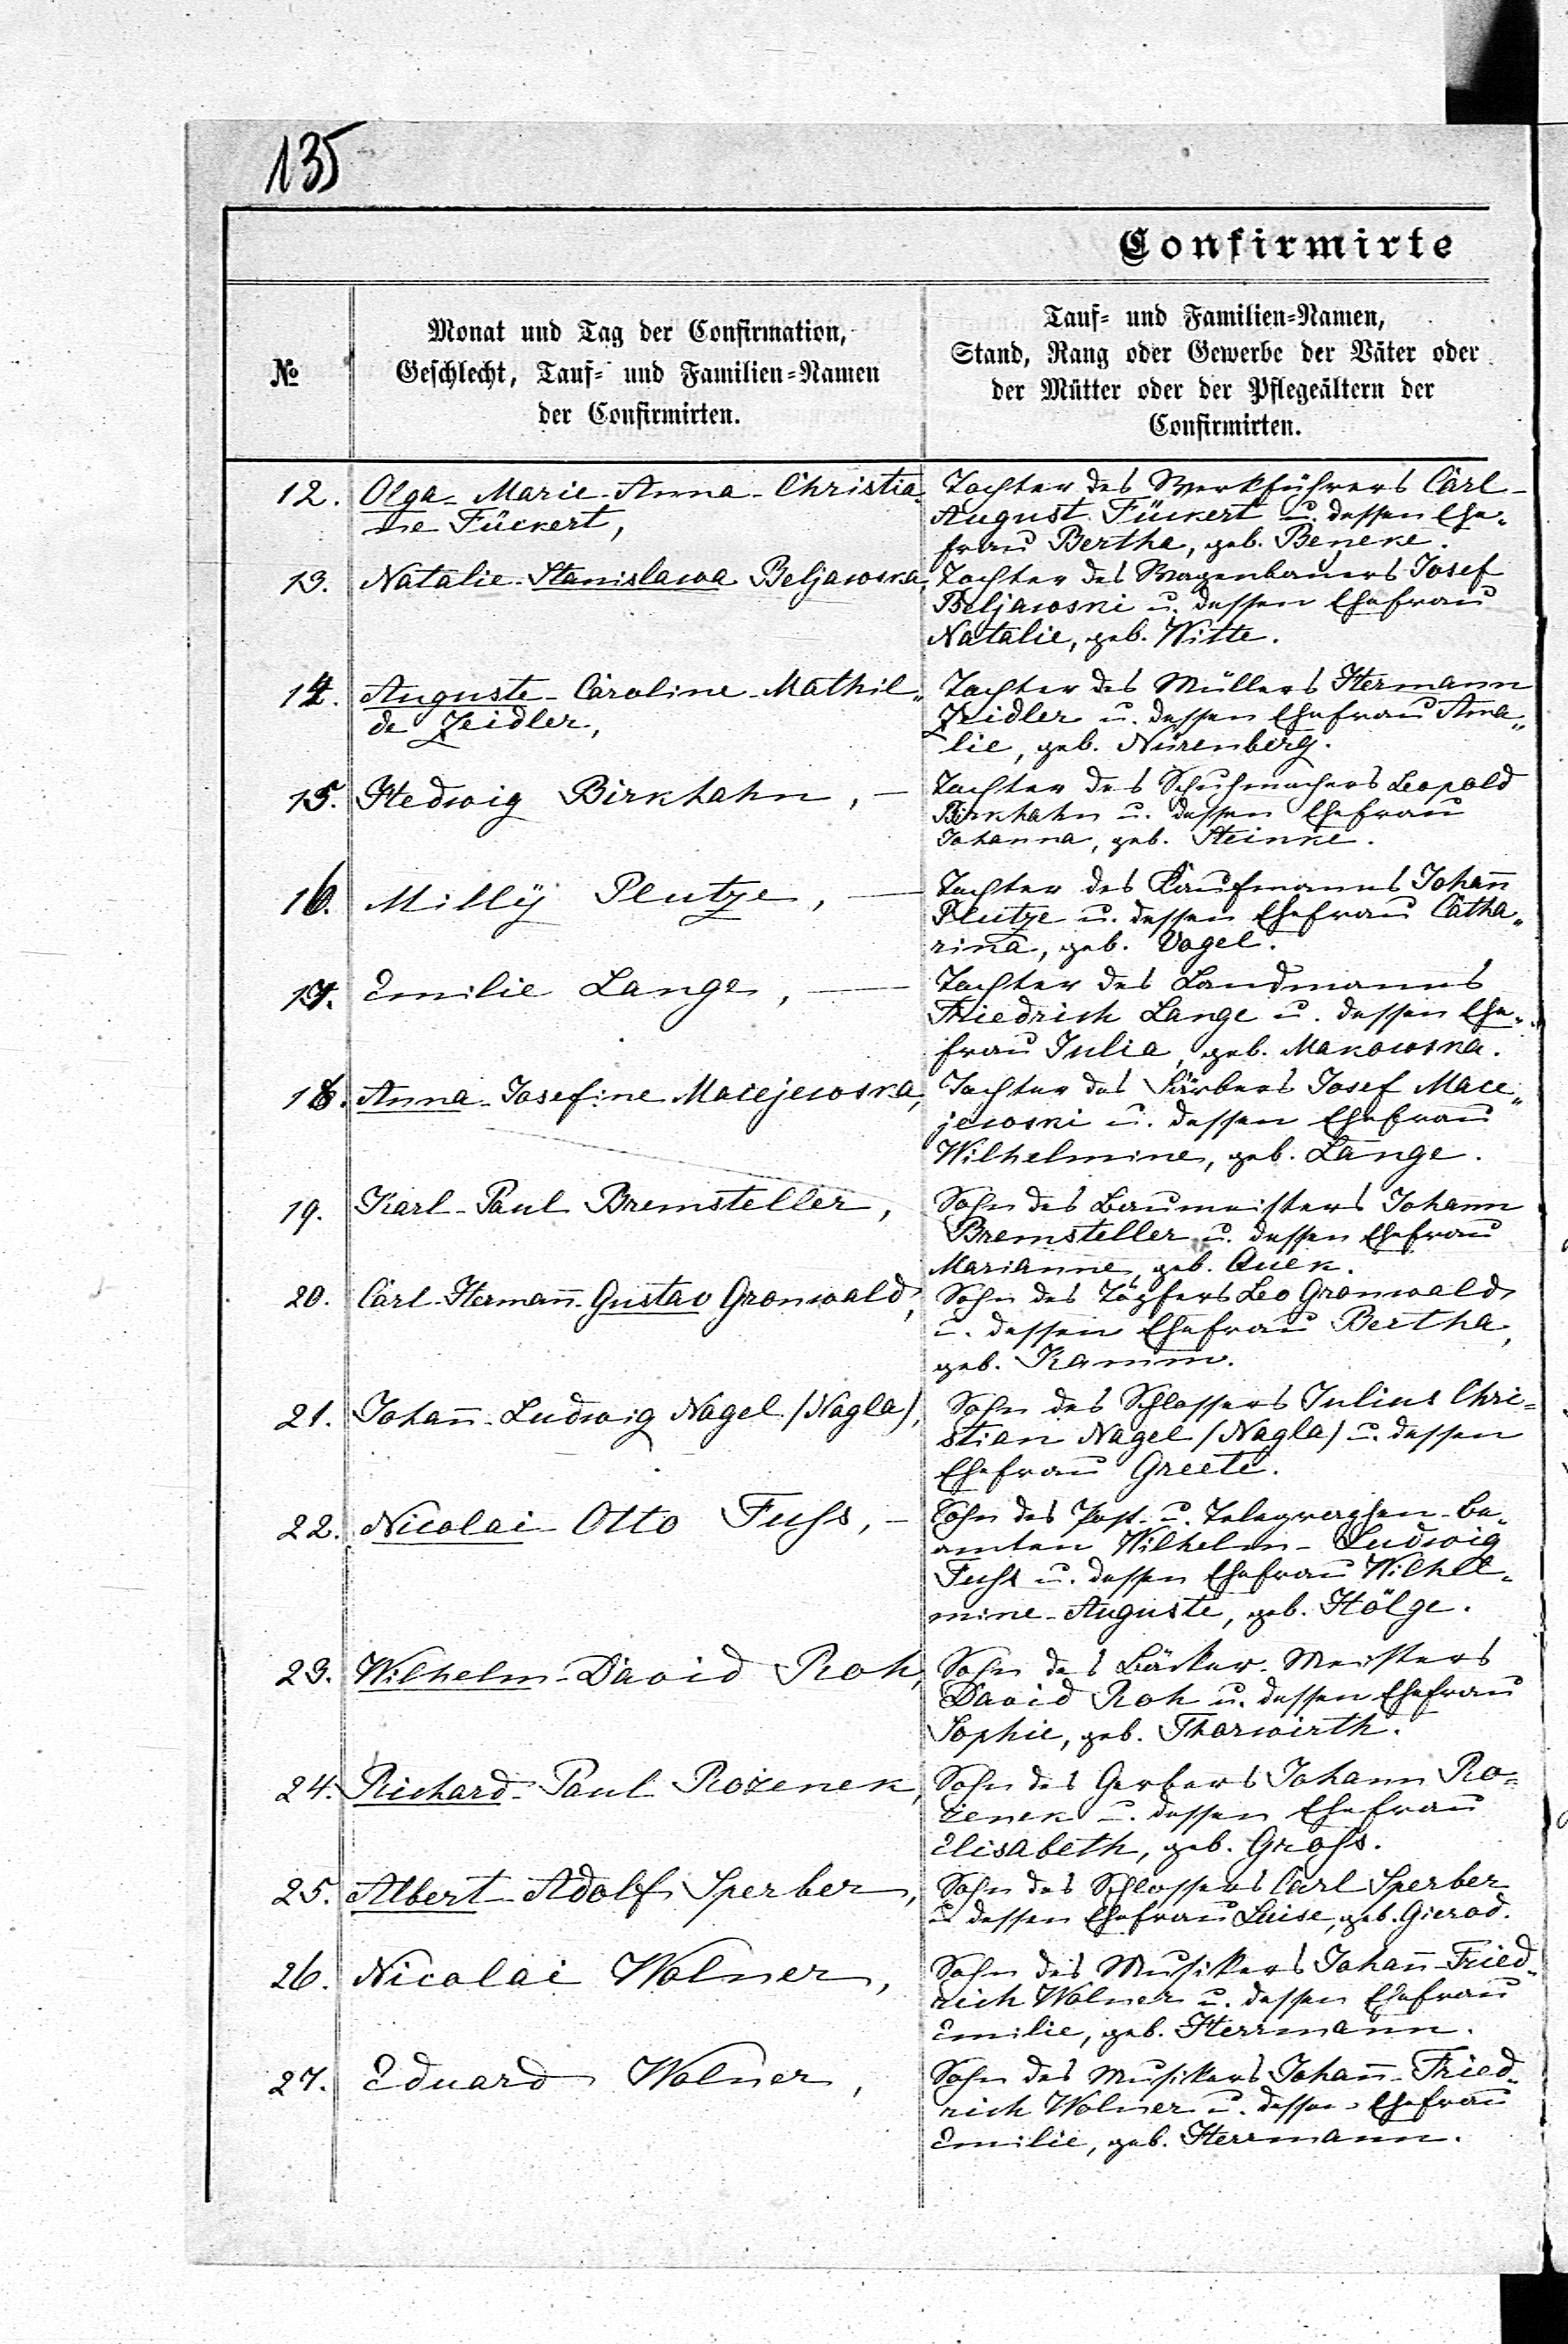 135
Confirmirte
№
Monat und Tag der Confirmation,
Geschlecht, Tauf- und Familien-Namen
der Confirmirten.
Tauf- und Familien-Namen,
Stand, Rang oder Gewerbe der Väter oder
der Mütter oder der Pflegeältern der
Confirmirten.
12. Olga-Marie-Anna-Christia-
ne Fückert,
Tochter des Werkführers Carl-
August Fückert u. dessen Ehe-
frau Bertha, geb. Beneke.
13. Natalie-Stanislawa Beljawska,
Tochter des Wagenbauers Josef
Beljawski u. dessen Ehefrau
Natalie, geb. Witte.
14. Auguste-Caroline-Mathil-
de Zeidler,
Tochter des Müllers Hermann
Zeidler u. dessen Ehefrau Ama-
lie, geb. Nürenberg.
15. Hedwig Birkhahn, —
Tochter des Schuhmachers Leopold
Birkhahn u. dessen Ehefrau
Johanna, geb. Steinke.
16. Milly Plutze, —
Tochter des Kaufmanns Johann
Plutze u. dessen Ehefrau Catha-
rina, geb. Vogel.
17. Emilie Lange, —
Tochter des Landmanns
Friedrich Lange u. dessen Ehe-
frau Julia, geb. Makowska.
18. Anna-Josefine Maciejewska,
Tochter des Färbers Josef Macie-
jewski u. dessen Ehefrau
Wilhelmine, geb. Lange.
19. Karl-Paul Bremsteller,
Sohn des Baumeisters Johann
Bremsteller u. dessen Ehefrau
Marianne, geb. Quek.
20. Carl-Hermann-Gustav Gronwald,
Sohn des Töpfers Leo Gronwald
u. dessen Ehefrau Bertha,
geb. Kamm.
21. Johann-Ludwig Nagel (Nagla),
Sohn des Schlossers Julius Chri-
stian Nagel (Nagla) u. dessen
Ehefrau Greete.
22. Nicolai-Otto Fuhs, —
Sohn des Post- u. Telegraphen-Be-
amten Wilhelm-Ludwig
Fuhs u. dessen Ehefrau Wilhel-
mine-Auguste, geb. Hölge.
23. Wilhelm-David Roh,
Sohn des Bäcker-Meisters
David Roh u. dessen Ehefrau
Sophie, geb. Tharwirth.
24. Richard-Paul Rożenek,
Sohn des Gerbers Johann Ro-
żenek u. dessen Ehefrau
Elisabeth, geb. Grohs.
25. Albert-Adolf Sperber,
Sohn des Schlossers Carl Sperber
u. dessen Ehefrau Luise, geb. Gierod.
26. Nicolai Wolner,
Sohn des Musikers Johann-Fried-
rich Wolner u. dessen Ehefrau
Emilie, geb. Herrmann.
27. Eduard Wolner,
Sohn des Musikers Johann-Fried-
rich Wolner u. dessen Ehefrau
Emilie, geb. Herrmann.